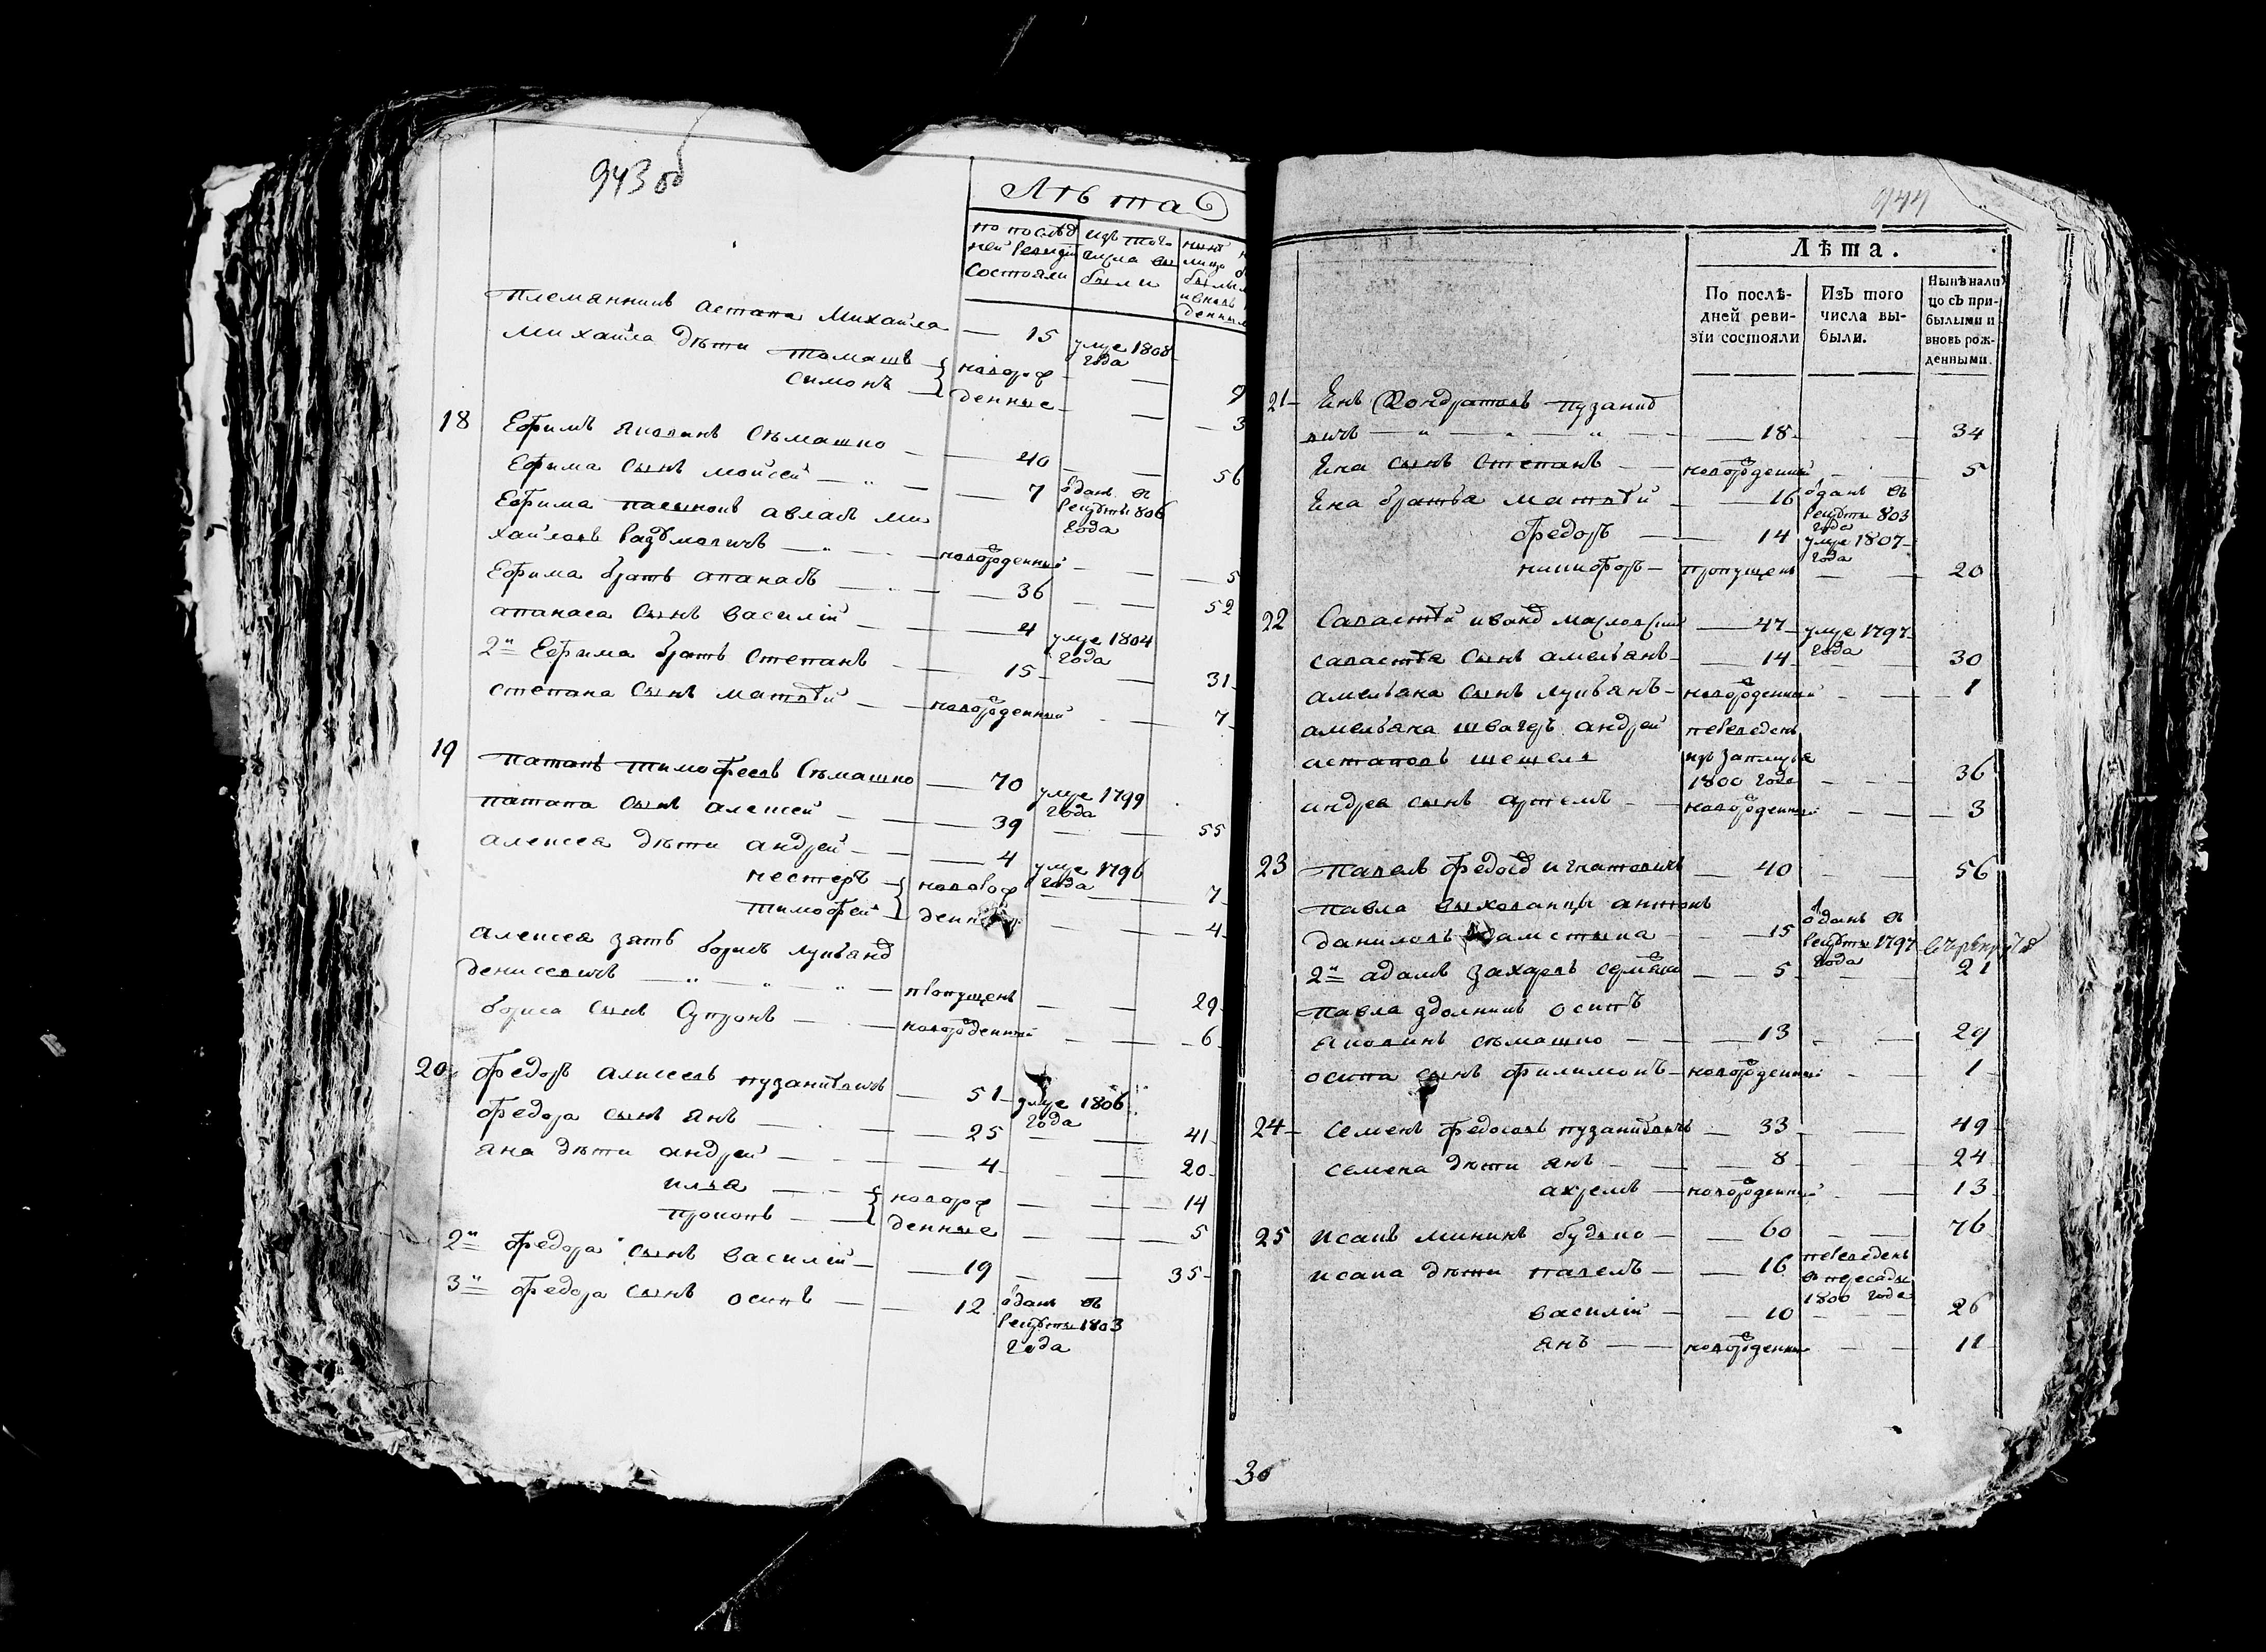 943 об
Лѣта
по послѣд
ней ревизіи
состояли
изъ того
числа вы
были
нынѣ
лицо
были
и вновь
денными
племянникъ астапа Михайла — 15 умре 1808
года
михайла дѣти томашъ — новорож —
симонъ — денные — 3
18 Ефимъ Яковинъ Сѣмашко — 40 — 56
Ефима сынъ моисей — 7 ѻданъ въ
рекруты 806
года
Ефима пасынокъ авласъ ми
хайловъ — новорожденный — 5
Ефима братъ апанасъ — 36 — 52
апанаса сынъ василій — 4 умре 1804
года
2й Ефима братъ степанъ — 15 — 31
степана сынъ матвѣй — новорожденный — 7
19 патапъ тимофеевъ Сѣмашко — 70 умре 1799
года
патапа сынъ алексей — 39 — 55
алексея дѣти андрей — 4 умре 1796
года
нестеръ — новорож — 7
тимофей — денные — 4
алексея зять борисъ лукьянов
денисевичъ — пропущенъ — 29
бориса сынъ Супронъ — новорожденный — 6
20 федоръ алисеевъ пузанкевичъ — 51 умре 1806
года
федора сынъ янъ — 25 — 41
яна дѣти андрей — 4 — 20
илья — новорож — 14
прокопъ — денные — 5
2й федора сынъ василей — 19 — 35
3й федора сынъ осипъ — 12 ѻданъ въ
рекруты 1803
года
944
Лѣта.
По послѣ-
дней реви-
зіи состояли
Изъ того
числа вы-
были.
Нынѣ нали
цо съ при-
былыми и
вновь рож-
денными.
21 Янъ Кондратовъ пузанке
вичъ — 18 — 34
Яна сынъ степанъ — новорожденный — 5
Яна братья матвѣй — 16 ѻданъ въ
рекруты 803
года
федоръ — 14 умре 1807
года
никифоръ — пропущенъ — 20
22 Савастѣй иванов — 47 умре 1797
года
савастѣя сынъ амельянъ — 14 — 30
амельяна сынъ лукьянъ — новорожденный — 1
амельяна швагеръ андрей переведенъ
астаповъ шешеля изъ
1800 года — 36
андрея сынъ артемъ — новорожденный — 3
23 павелъ федосов игнатовичъ — 40 — 56
павла выхованцы антонъ
даниловъ — 15 ѻданъ въ
рекруты 1797
года
2й адамъ захаровъ — 5 — 21
павла здолникъ осипъ
яковинъ сѣмашко — 13 — 29
осипа сынъ филимонъ — новорожденный — 1
24 семенъ федосовъ пузанкевичъ — 33 — 49
семена дѣти янъ — 8 — 24
ахремъ — новорожденный — 13
25 исакъ мининъ будько — 60 — 76
исака дѣти павелъ — 16 переведенъ
1800 года
василій — 10 — 26
янъ — новорожденный — 11
36